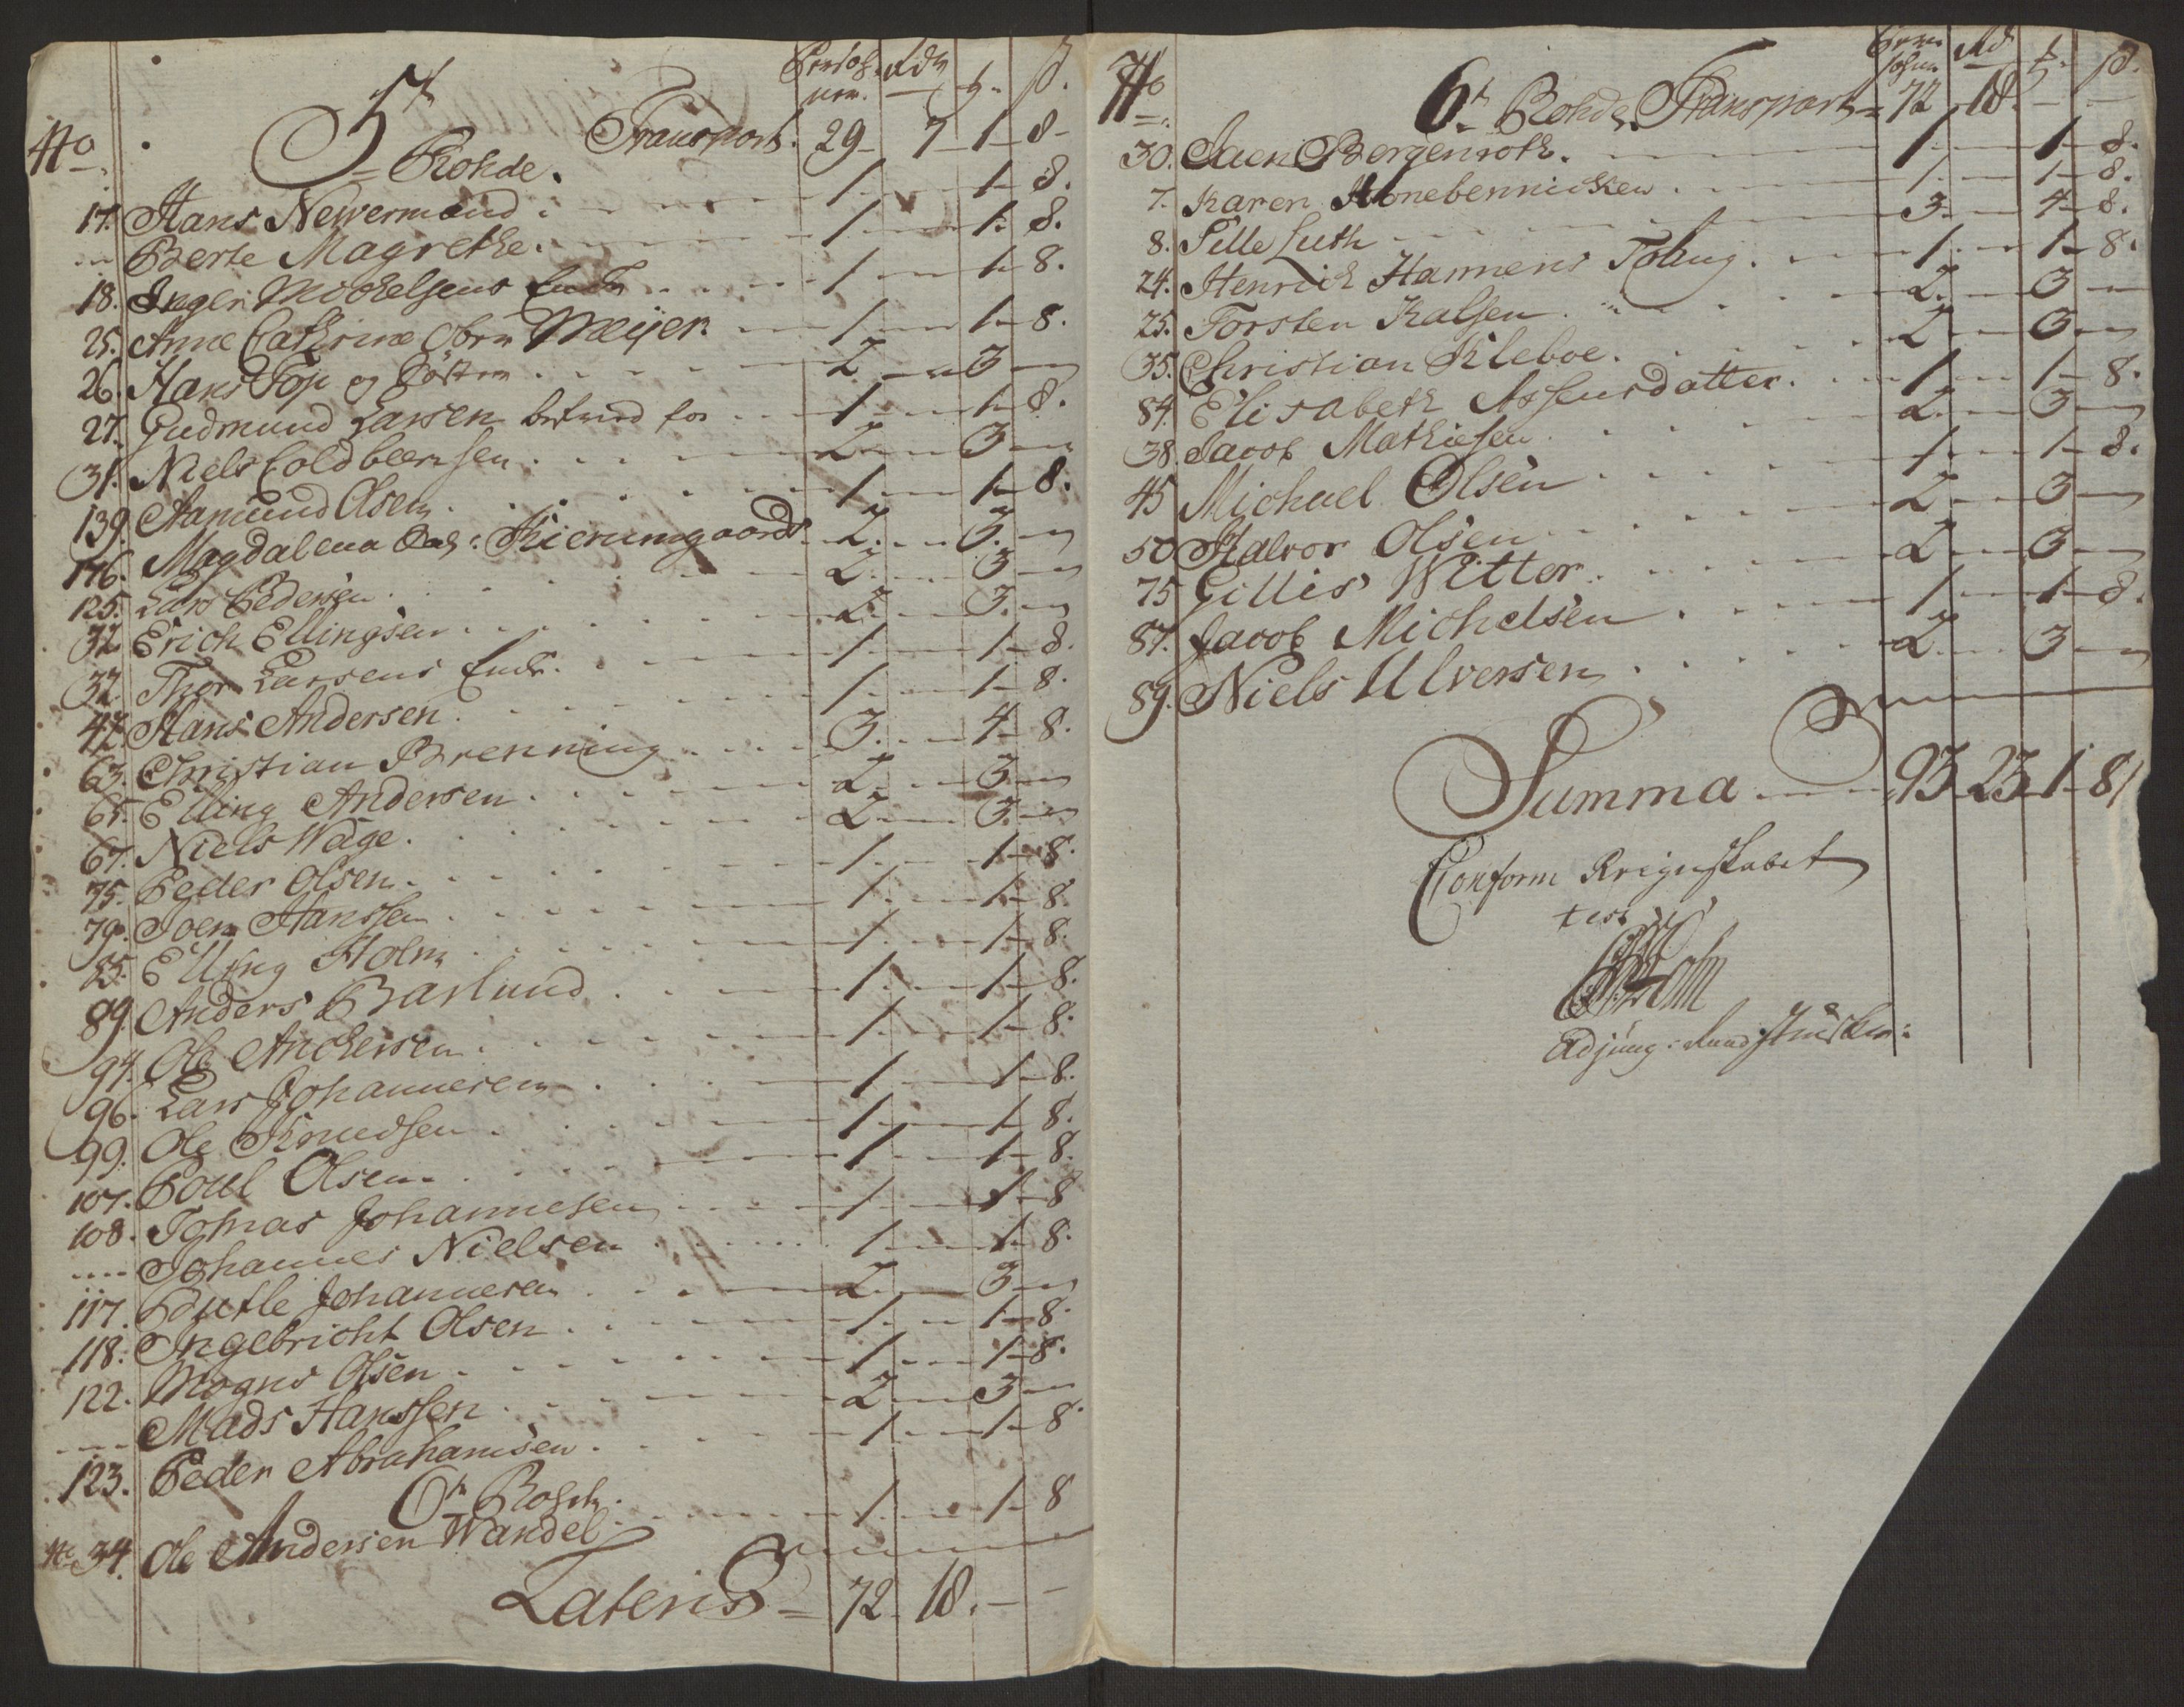 Persohner. Rdr ƒ. ß.
5te Rohde. Transport. 29 7 1 8
No
17. Hans Newermand 1 1 8.
Berte Magrethe 1 1 8.
18. Inger Mickelsens Encke 1 1 8.
25. Anne Catrine Meijer 1 1 8.
26. Hans Top og Söster 2 3
27. Gudmund Larsen 1 1 8.
31. Niels Coldbeernsen 2 3
139. Aamund Olsen 1 1 8.
176. Magdalena Kierumgaards 2 3
125. Lars Pedersen 2 3
32 Erich Ellingsen 2 3
32 Thor Larsens Encke 1 1 8.
47. Hans Andersen 1 1 8.
63. Christian Brenning 3 4 8.
65. Elling Andersen 2 3
67. Niels Wage 2 3
75. Peder Olsen 1 1 8.
79. Joen Hanssen 1 1 8.
85. Elling Holm 1 1 8.
89. Anders Barlund 1 1 8.
94. Ole Anckersen 1 1 8.
96. Lars Johannesen 1 1 8.
99. Ole Knudsen 1 1 8.
107. Poul Olsen 1 1 8.
108. Tomas Johannesen 1 1 8
Johannes Nielsen 1 1 8.
117. Johannesen 2 3
118. Ingebricht Olsen 1 1 8.
122. Mogns Olsen 1 1 8.
Mads Hanssen 2 3
123. Peder Abrahamsen 1 1 8
6te Rohde
No 34. Ole Andersen Wandel 1 1 8
Lateris 72 18.
No 6te Rohde. Transport 72 18.
30. Saen Bergenroth 1 1 8.
7. Karen Honebennicken 1 1 8.
8. Sille Luth 3 4 8.
24. Henrich Hannens 1 1 8.
25. Torsten Kalsen 2 3
35. Christian Kleboe 2 3
84. Elisabeth Assensdatter 1 1 8.
38. Jacob Mathiesen 2 3
45 Michael Olsen 1 1 8.
50 Halvor Olsen 2 3
75 Gillis Witter 2 3
87. Jacob Michelsen 1 1 8.
89. Niels Ulversen 2 3
Summa 93 23 1 8
Conform Reignskabet
test
Holm